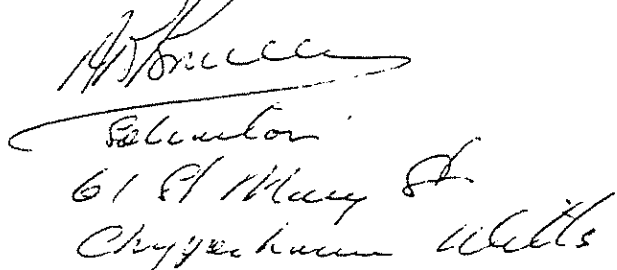 Solicitor
61 St Mary St
Chippenham Wilts